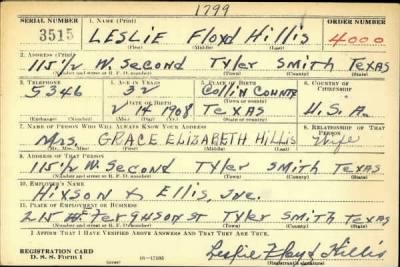 1799
SERIAL NUMBER 1. NAME (Print) ORDER NUMBER
3515 LESLIE Floyd Hillis 4000
(First) (Middle) (Last)
2. ADDRESS (Print)
115½ W. Second Tyler Smith Texas
(Number and street or R. F. D. number) (Town) (County) (State)
3. TELEPHONE 4. AGE IN YEARS 5. PLACE OF BIRTH 6. COUNTRY OF CITIZENSHIP
5346 32 Collin County
DATE OF BIRTH
2 14 1908 Texas U.S.A.
(Mo.) (Day) (Yr.)
7. NAME OF PERSON WHO WILL ALWAYS KNOW YOUR ADDRESS 8. RELATIONSHIP OF THAT PERSON
Mrs GRACE ELIZABETH Hillis Wife
(Mr., Mrs., Miss) (First) (Middle) (Last)
9. ADDRESS OF THAT PERSON
115½ W. Second Tyler Smith Texas
(Number and street or R. F. D. number) (Town) (County) (State)
10. EMPLOYER'S NAME
Hixson & Ellis, Inc.
11. PLACE OF EMPLOYMENT OR BUSINESS
215 W. Ferguson St Tyler Smith Texas
(Number and street or R. F. D. number) (Town) (County) (State)
I AFFIRM THAT I HAVE VERIFIED ABOVE ANSWERS AND THAT THEY ARE TRUE.
REGISTRATION CARD
D. S. S. Form 1 Leslie Floyd Hillis
(Registrant's signature)